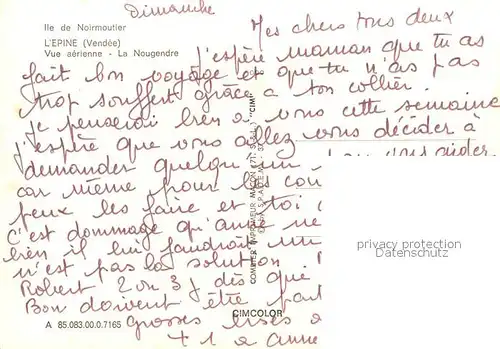 Dimanche
Ile de Noirmoutier
L'EPINE (Vendée)
Vue aérienne - La Nougendre
Mes chers tous deux
j'espère maman que tu as
fait bon voyage et que tu n'as pas
trop souffert grâce a ton collier.
je penserai bien a vous cette semaine
j'espère que vous allez vous décider à
demander quelqu'un
vous aider.
car même pour les cou
peux les faire et toi
C'est dommage qu'
bien il lui faudrait un
n'est pas la solution
Robert 2 ou 3 j dès que
Bon doivent être part
grosses bises a
+ 1 a
COMBIER IMPRIMEUR MACON "CIM"
CIMCOLOR
A 85.083.00.0.7165
privacy protection
Datenschutz